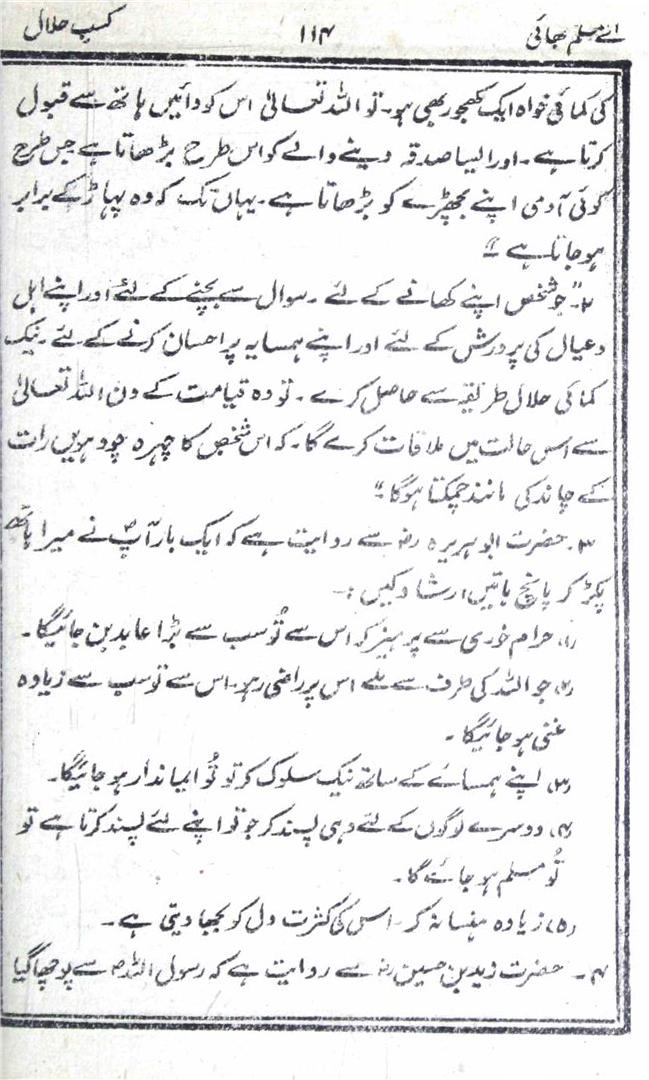 اے مسلم بھائی ۱۱۴ کسبِ حلال
کی کمائی خواہ ایک کھجور بھی ہو۔ تو اللہ تعالیٰ اس کو دائیں ہاتھ سے قبول
کرتا ہے۔ اور ایسا صدقہ دینے والے کو اس طرح بڑھاتا ہے جس طرح
کوئی آدمی اپنے بچھڑے کو بڑھاتا ہے۔ یہاں تک کہ وہ پہاڑ کے برابر
ہو جاتا ہے"
۲۔ "جو شخص اپنے کھانے کے لئے ۔ سوال سے بچنے کے لئے اور اپنے اہل
و عیال کی پرورش کے لئے اور اپنے ہمسایہ پر احسان کرنے کے لئے ۔ نیک
کمائی حلال طریقہ سے حاصل کرے ۔ تو وہ قیامت کے دن اللہ تعالیٰ
سے اس حالت میں ملاقات کرے گا۔ کہ اس شخص کا چہرہ چودہویں رات
کے چاند کی مانند چمکتا ہوگا"
۳۔ حضرت ابو ہریرہ رضؓ سے روایت ہے کہ ایک بار آپؐ نے میرا ہاتھ
پکڑ کر پانچ باتیں ارشاد کیں :۔
(۱) حرام خوری سے پرہیز کر اس سے تُو سب سے بڑا عابد بن جائیگا۔
(۲) جو اللہ کی طرف سے ملے اس پر راضی رہو۔ اس سے تو سب سے زیادہ
غنی ہو جائیگا ۔
(۳) اپنے ہمسائے کے ساتھ نیک سلوک کر تو تُو ایماندار ہو جائیگا۔
(۴) دوسرے لوگوں کے لئے وہی پسند کر جو تو اپنے لئے پسند کرتا ہے تو
تُو مسلم ہو جائے گا۔
(۵) زیادہ ہنسا نہ کر۔ اس کی کثرت دل کو بجھا دیتی ہے ۔
۴۔ حضرت زید بن حسین رضؓ سے روایت ہے کہ رسول اللہؐ سے پوچھا گیا